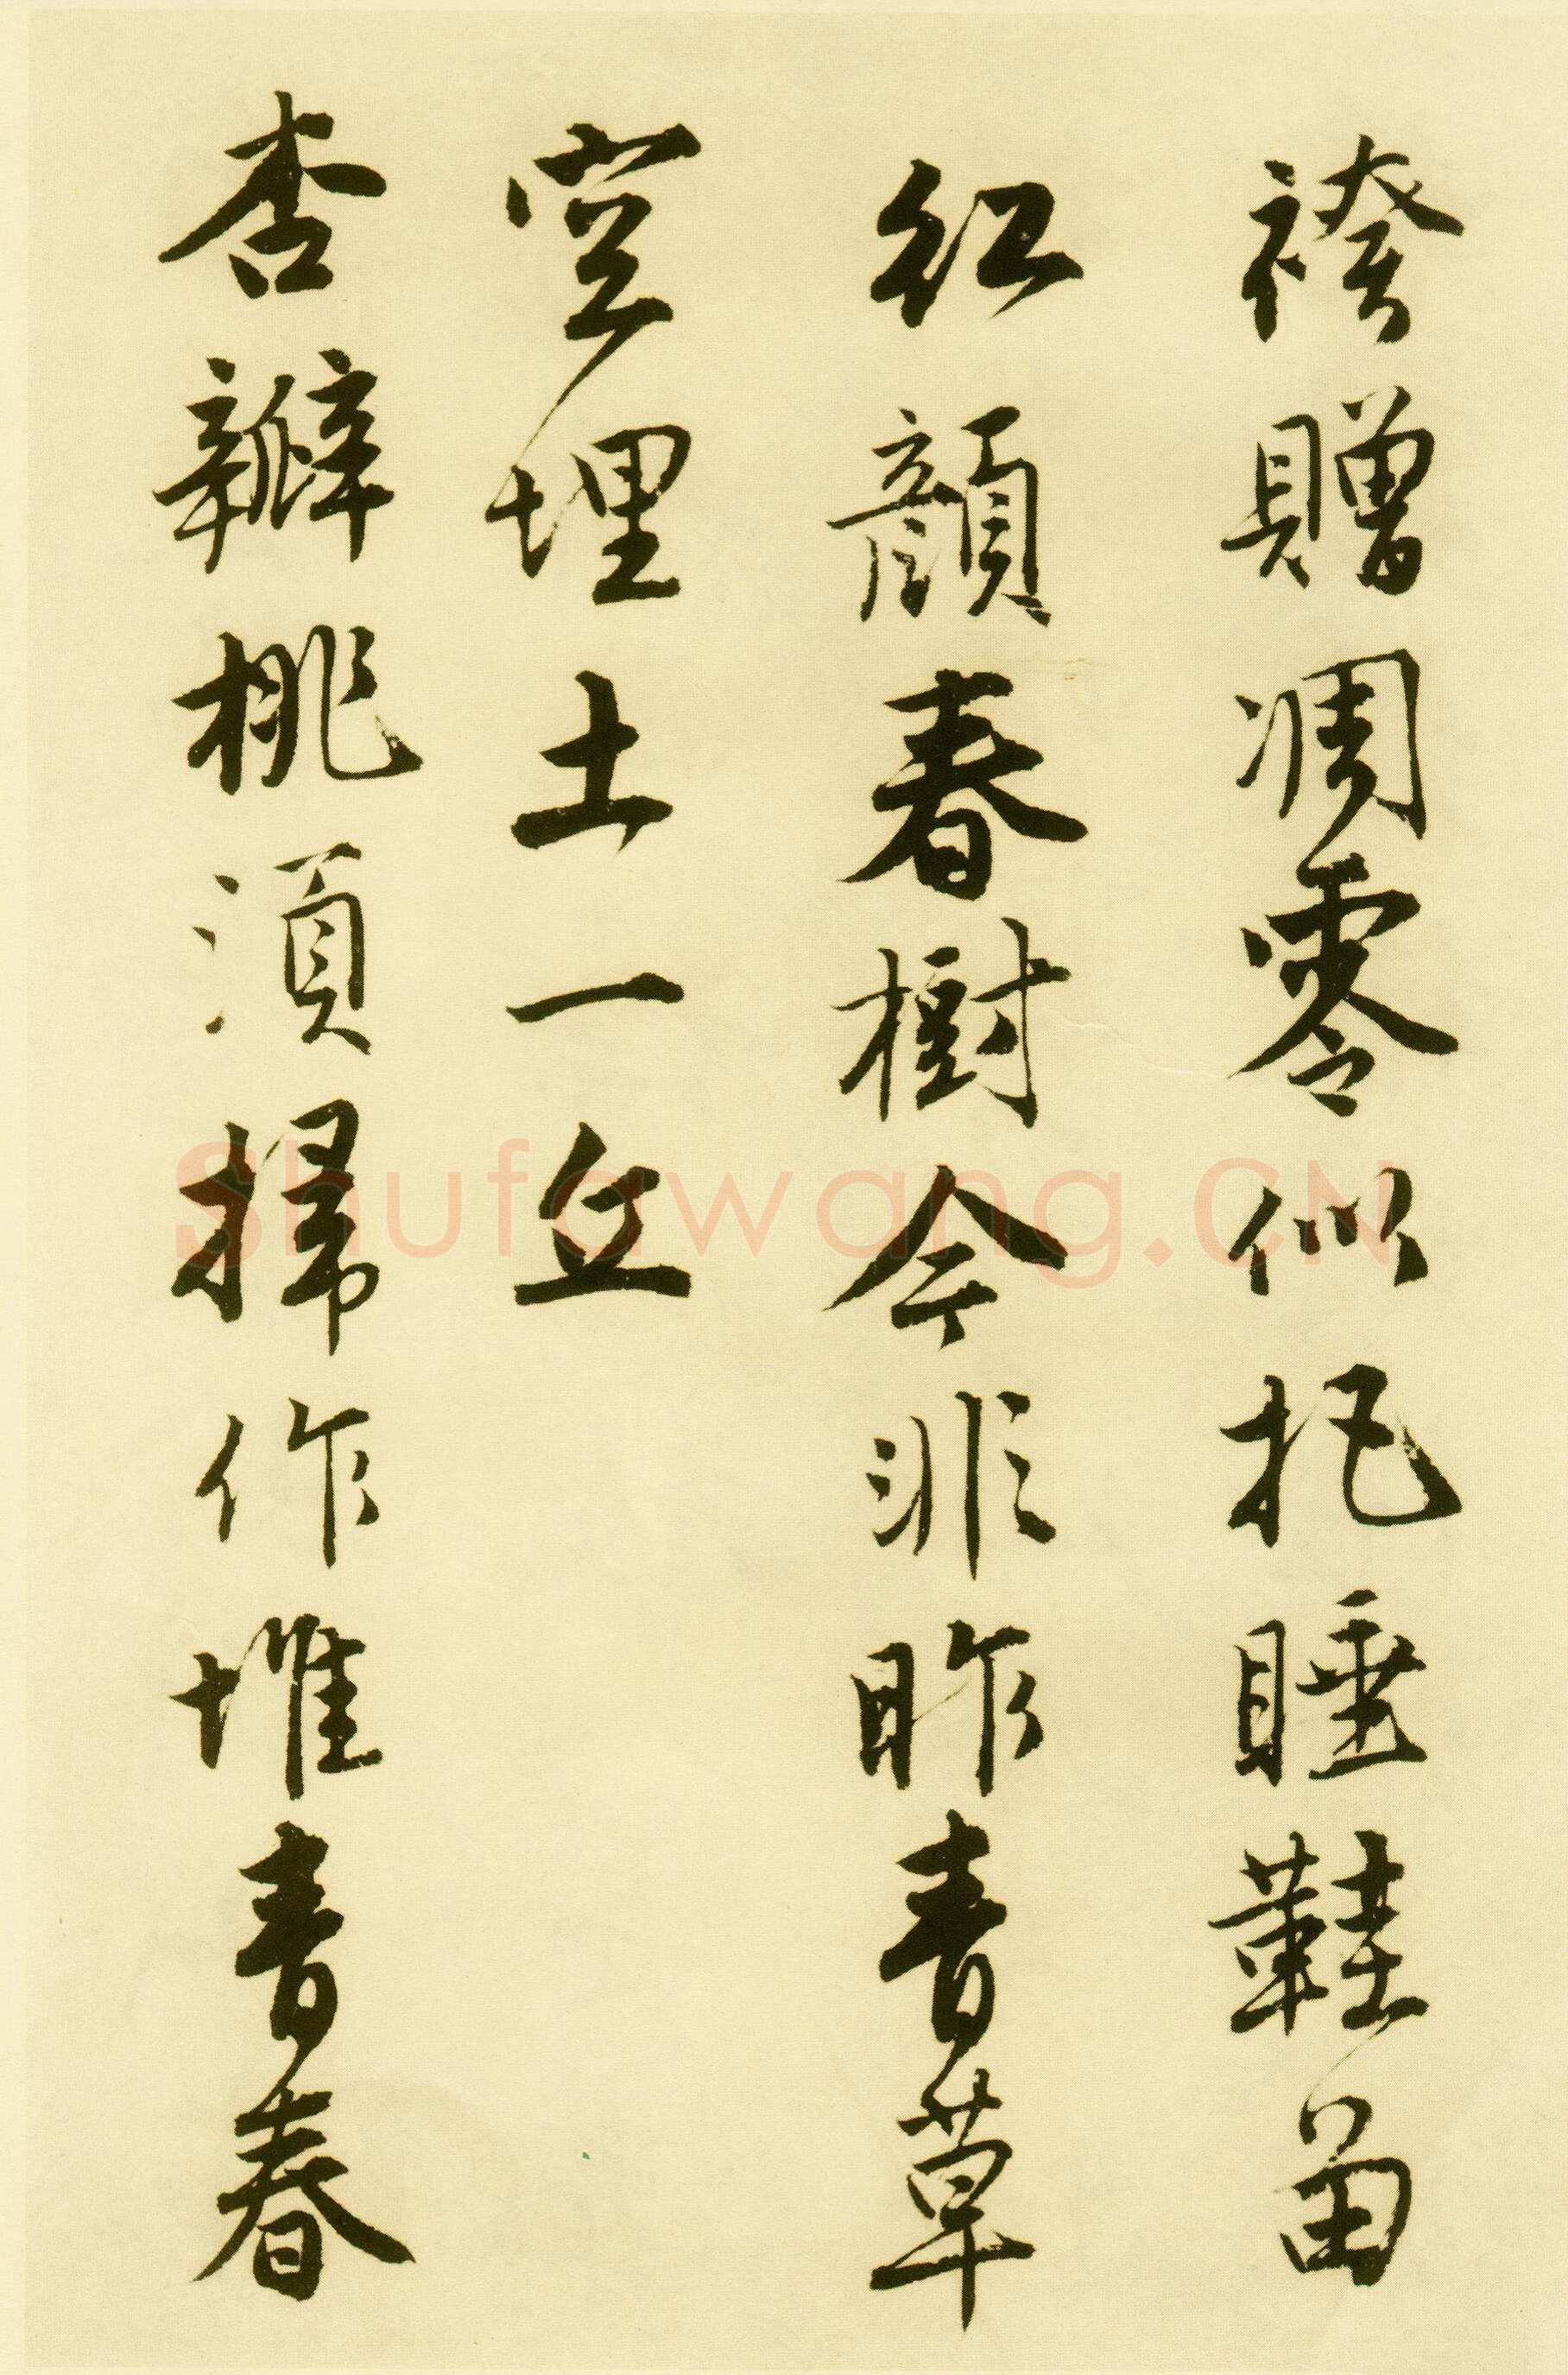 袴贈凋零似把睡鞋留
紅顔春樹今非昨青草
空埋土一丘
杏瓣桃須掃作堆青春
Shufawang.CN